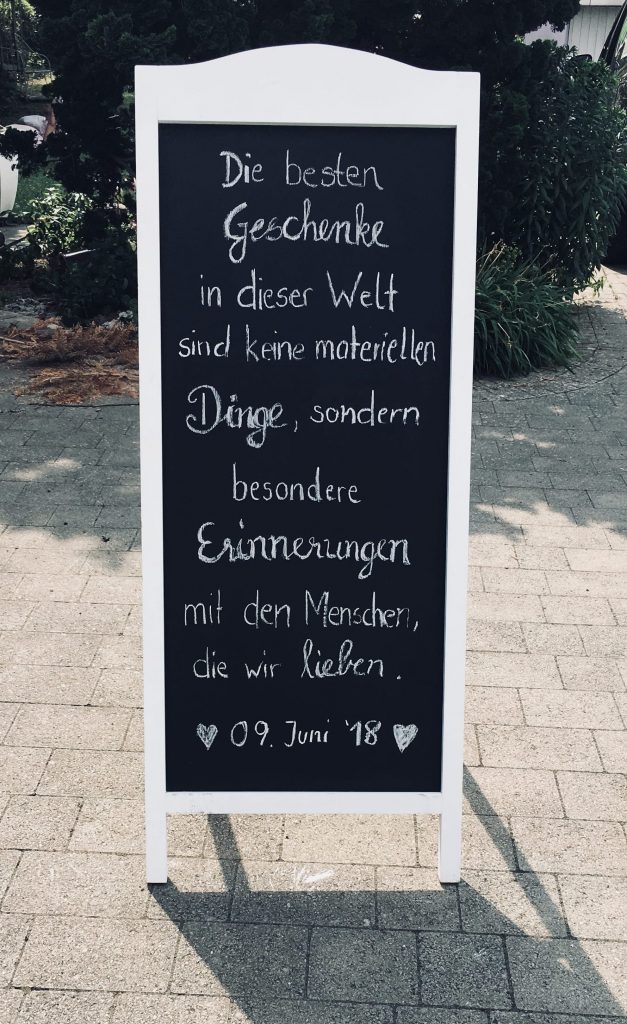 Die besten
Geschenke
in dieser Welt
sind keine materiellen
Dinge, sondern
besondere
Erinnerungen
mit den Menschen,
die wir lieben.
♥ 09. Juni '18 ♥